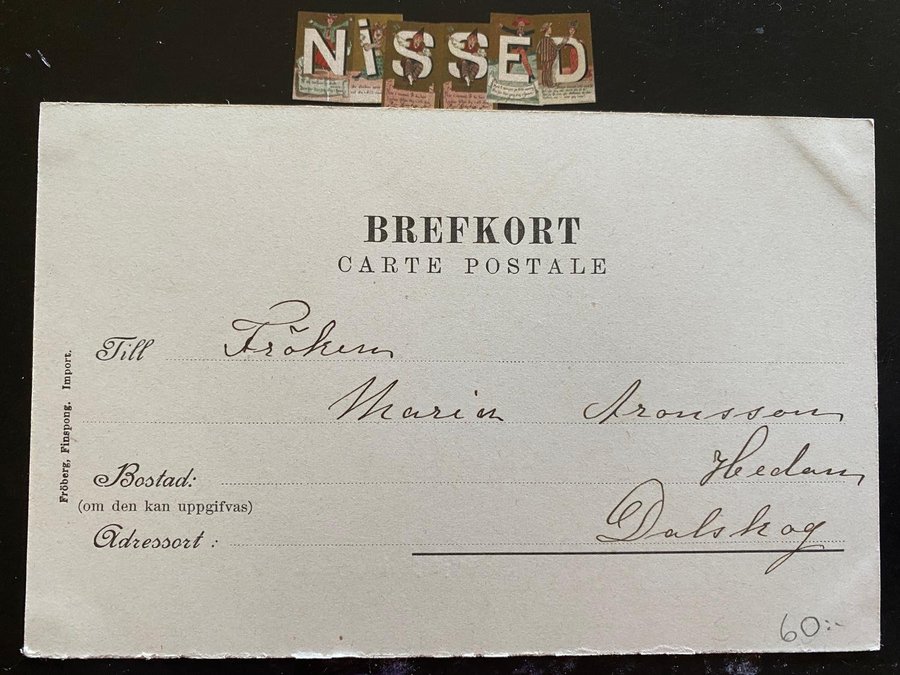 NiSSED
BREFKORT
CARTE POSTALE
Till Fröken
Maria Aronsson
Bostad: Hedan
(om den kan uppgifvas)
Adressort: Dalskog
Fröberg, Finspong. Import.
60:-